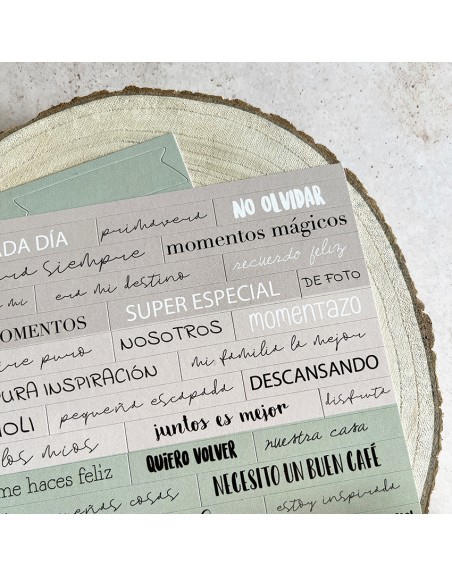 ADA DÍA primavera NO OLVIDAR
siempre momentos mágicos
mi era mi destino recuerdo feliz
OMENTOS SUPER ESPECIAL DE FOTO
puro NOSOTROS momentazo
PURA INSPIRACIÓN mi familia la mejor
OLI pequeña escapada DESCANSANDO
los míos juntos es mejor disfruta
me haces feliz QUIERO VOLVER nuestra casa
cosas NECESITO UN BUEN CAFÉ
estoy inspirada